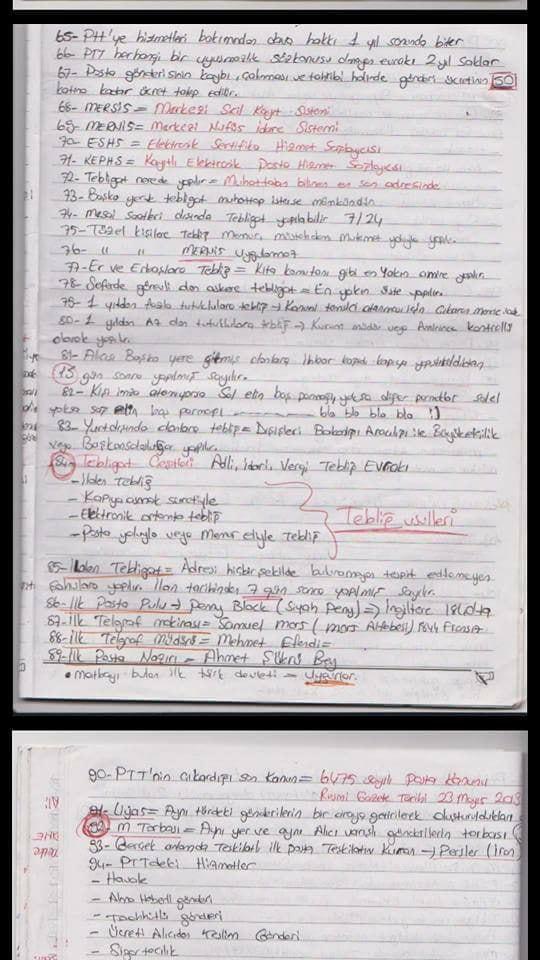 65- PTT'ye hizmetleri bakımından dava hakkı 1 yıl sonunda biter
66- PTT herhangi bir uyuşmazlık sözkonusu olmayan evrakı 2 yıl saklar
67- Posta gönderisinin kaybı, çalınması ve tahribi halinde gönderi ücretinin 50
katına kadar ücret talep edilir.
68- MERSİS = Merkezi Sicil Kayıt Sistemi
69- MERNİS = Merkezi Nüfus İdare Sistemi
70- ESHS = Elektronik Sertifika Hizmet Sağlayıcısı
71- KEPHS = Kayıtlı Elektronik Posta Hizmet Sağlayıcısı
72- Tebligat nerede yapılır = Muhatabın bilinen en son adresinde
73- Başka yerde tebligat muhattap isterse mümkündür
74- Mesai saatleri dışında Tebligat yapılabilir 7/24
75- Tüzel kişilere Tebliğ memur, müstahdem yoluyla yapılır.
76- " " MERNİS Uygulanmaz
77- Er ve Erbaşlara Tebliğ = Kıta komutanı gibi en Yakın amire yapılır
78- Seferde görevli olan askere tebligat = En yakın üste yapılır.
79- 1 yıldan fazla tutuklulara tebliğ → Kanuni temsilci atanması için
80- 1 yıldan Az olan tutuklulara tebliğ → Kurum müdür veya Amirince kontrollü
olarak yapılır.
81- Alıcısı Başka yere gitmiş olanlara ihbar kağıdı kapıya yapıştırıldıktan
15 gün sonra yapılmış sayılır.
82- Kişi imza atamıyorsa Sol elin baş parmağı, yoksa diğer parmaklar sol el
yoksa sağ elin baş parmağı bla bla bla bla :)
83- Yurtdışında olanlara tebliğ = Dışişleri Bakanlığı Aracılığı ile Büyükelçilik
veya Başkonsolosluğa yapılır.
84- Tebligat Çeşitleri Adli, İdari, Vergi Tebliğ Evrakı
- İlden Tebliğ
- Kapıya asmak suretiyle
- Elektronik ortamta tebliğ
- Posta yoluyla veya Memur eliyle Tebliğ
Tebliğ usulleri
85- İlden Tebligat = Adresi hiçbir şekilde bulunamayan tespit edilemeyen
şahıslara yapılır. İlan tarihinden 7 gün sonra yapılmış sayılır.
86- İlk Posta Pulu → Penny Black (Siyah Peny) => İngiltere 1840'ta
87- İlk Telgraf makinası = Samuel Mors (Mors Alfebesi) 1844 Fransa
88- İlk Telgraf Müdürü = Mehmet Efendi =
89- İlk Posta Nazırı = Ahmet Şükrü Bey
• Matbayı bulan ilk türk devleti = Uygurlar.
90- PTT'nin çıkardığı son Kanun = 6475 sayılı posta kanunu
Resmi Gazete Tarihi 23 Mayıs 2013
91- Liyas = Aynı türdeki gönderilerin bir araya getirilerek oluşturuldukları
92- M Torbası = Aynı yer ve aynı Alıcı varışlı gönderilerin torbası
93- Gerçek anlamda Teşkilatlı ilk posta Teşkilatını Kuran → Persler (İran)
94- PTT'deki Hizmetler
- Havale
- Alma Haberli gönderi
- Taahhütlü gönderi
- Ücreti Alıcıdan Teslim Gönderi
- Sigortacılık